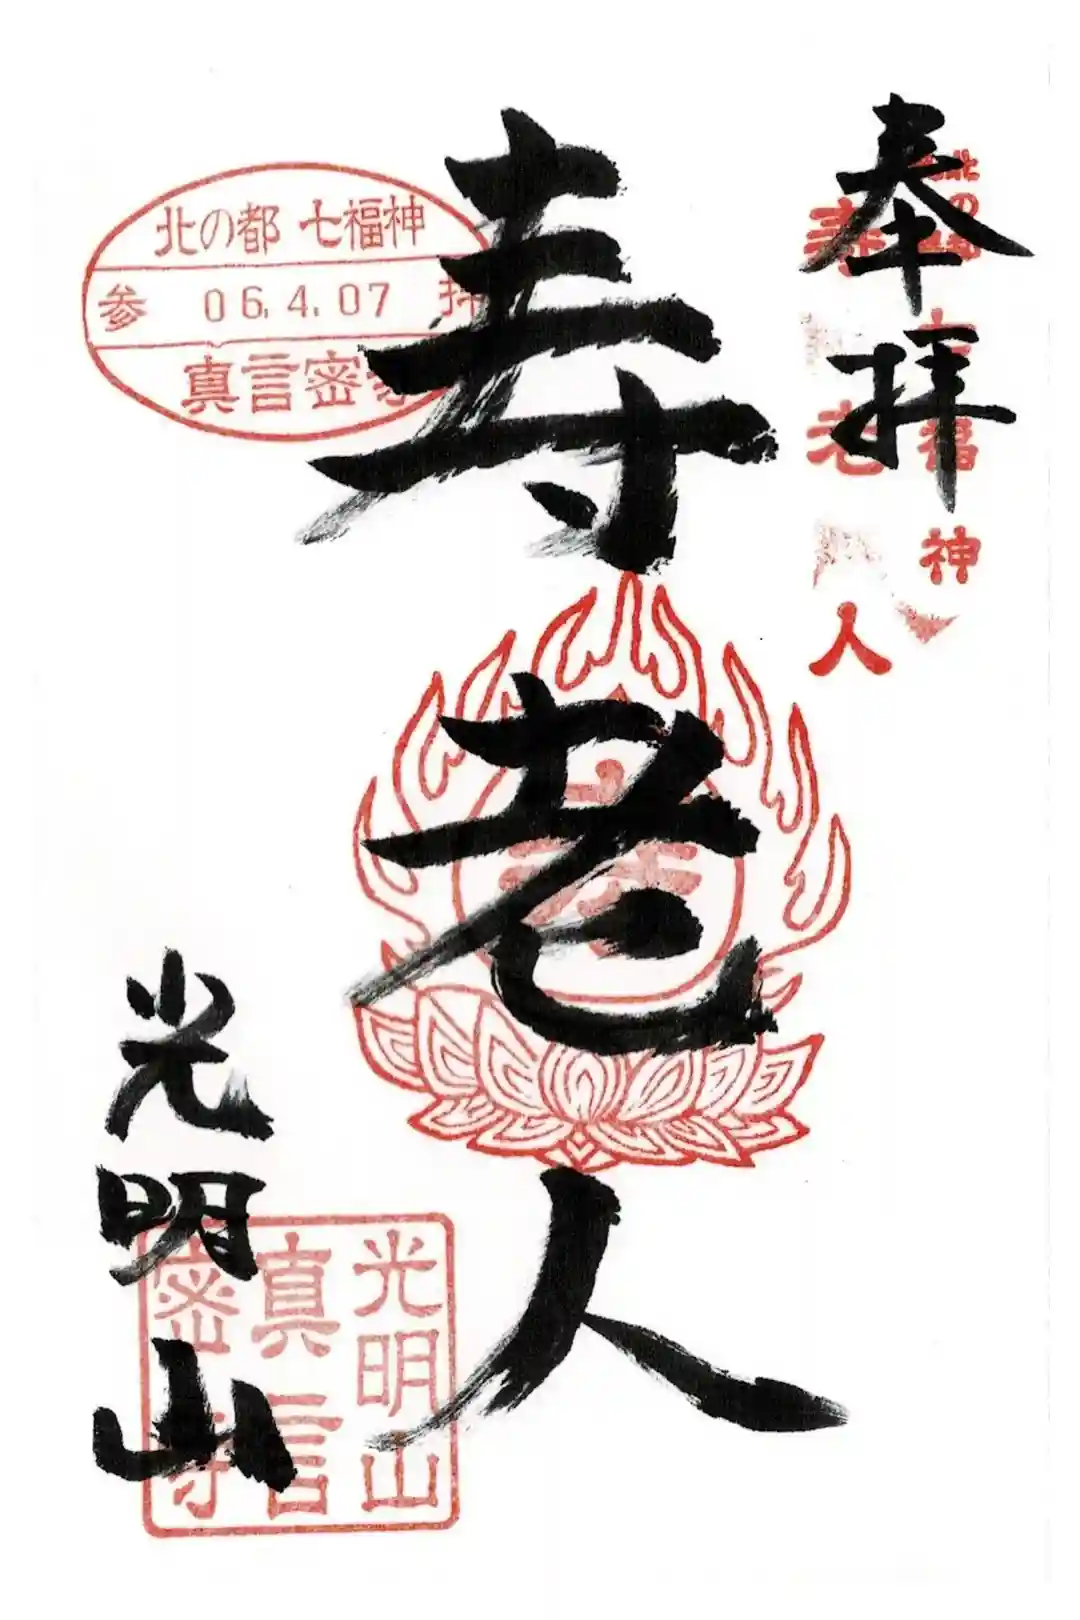 奉拝
北の都 七福神
寿老人
寿老人
北の都 七福神
参 06.4.07 拝
真言密寺
光明山
光明山
真言
密寺